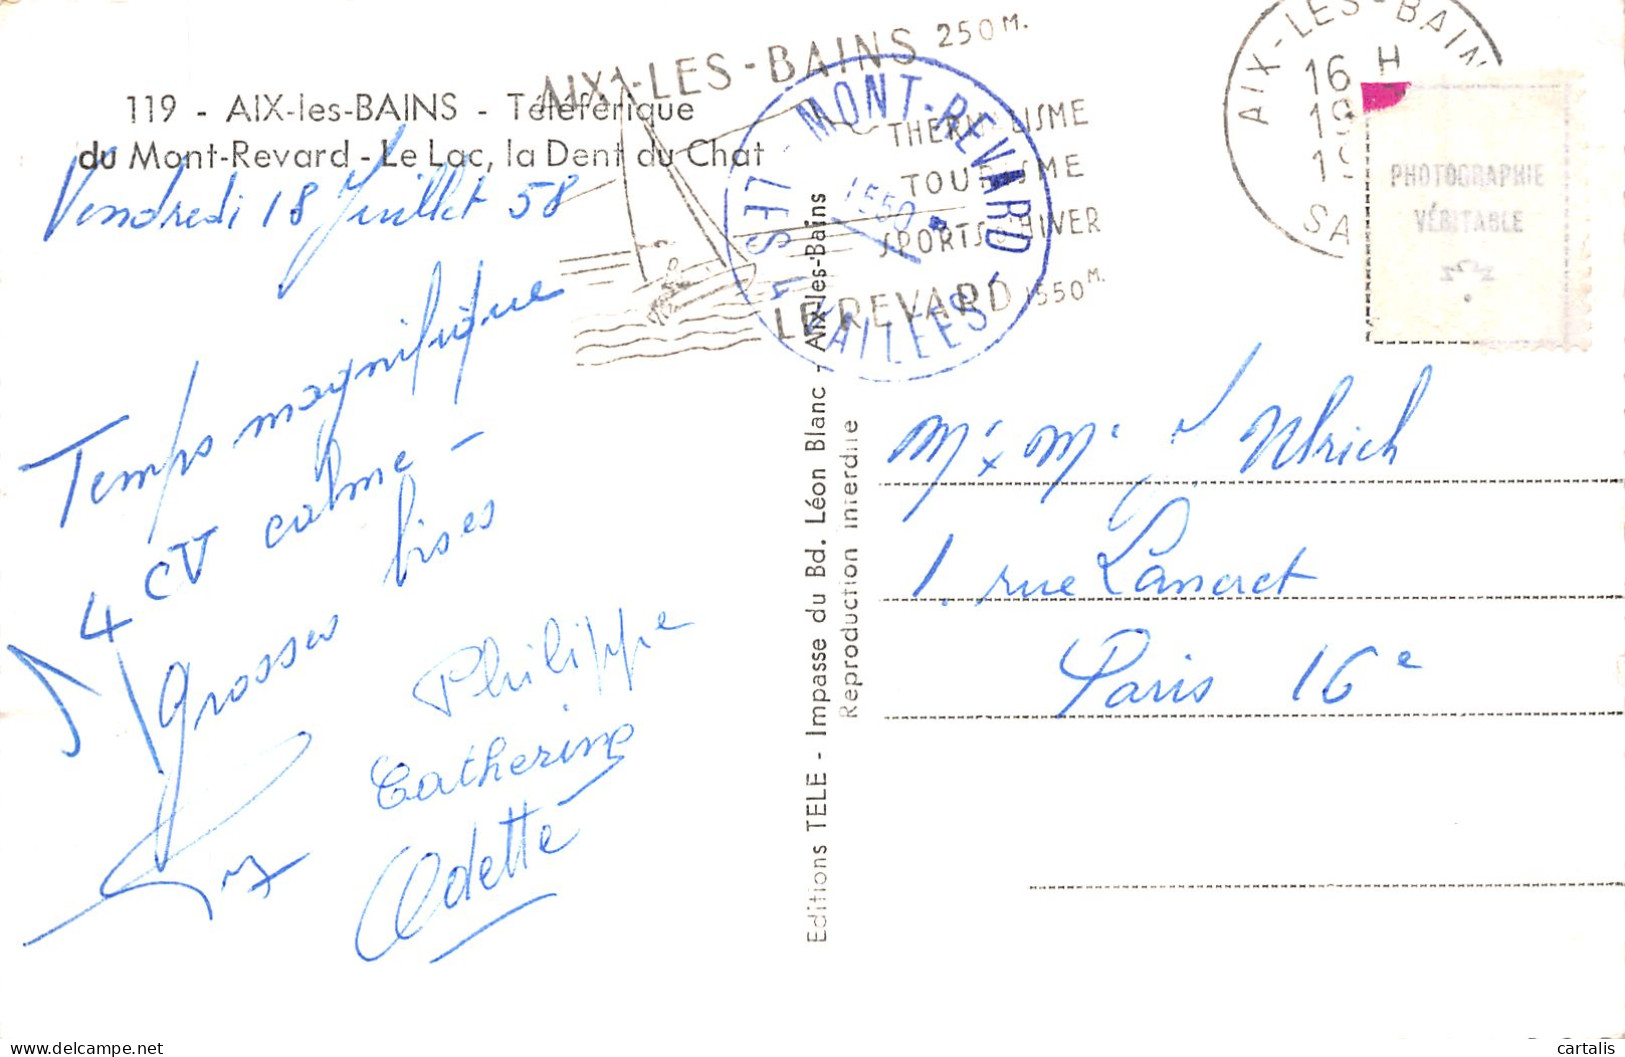 119 - AIX-les-BAINS - Téléférique
du Mont-Revard - Le Lac, la Dent du Chat
Vendredi 18 Juillet 58
Temps magnifique
4 CV calme -
Grosses bises
Philippe
Catherine
Odette
AIX-LES-BAINS 250 M.
THERMALISME
TOURISME
SPORTS D'HIVER
LE REVARD 1550 M.
MONT-REVARD
1550
LES 4 VALLEES
AIX-LES-BAINS
16 H
19
19
SA
PHOTOGRAPHIE
VÉRITABLE
Editions TELE - Impasse du Bd. Léon Blanc - Aix-les-Bains
Reproduction interdite
Mr x Me J Ulrich
1. rue Lancret
Paris 16e
delcampe.net
cartalis